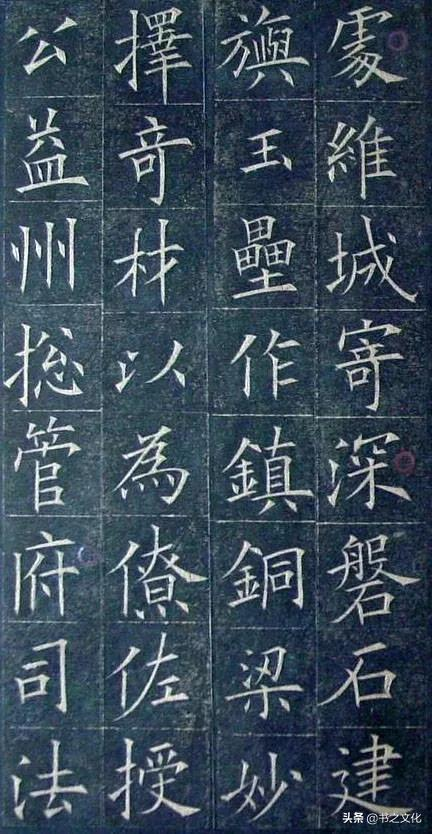 處維城寄深磐石建
旟玉壘作鎮銅梁妙
擇竒材以為僚佐授
公益州捴管府司法
头条 @书之文化